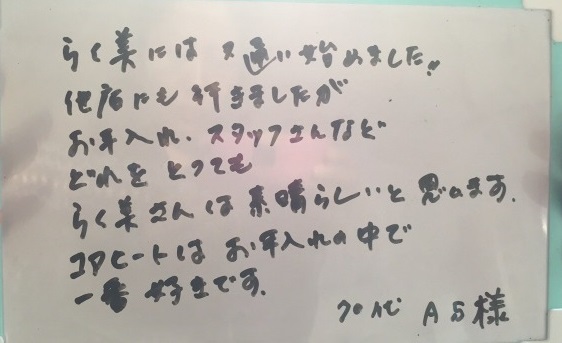 らく美には又通い始めました!
他店にも行きましたが
お手入れ、スタッフさんなど
どれをとっても
らく美さんは素晴らしいと思います.
コアヒートはお手入れの中で
一番好きです.
70代 A.S様